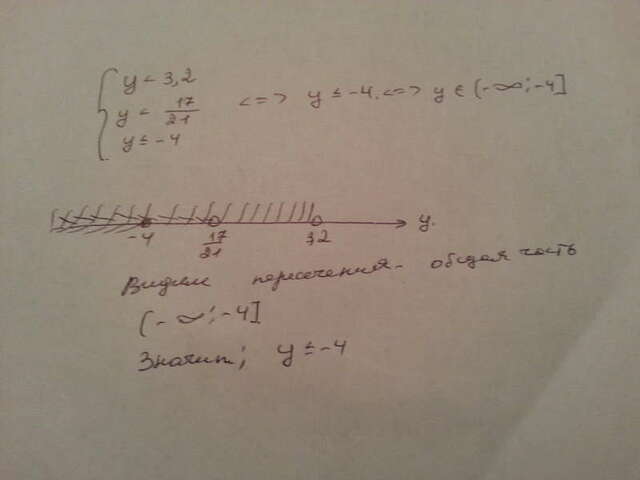 { y < 3,2
y < 17/21 <=> y ≤ -4. <=> y ∈ (-∞; -4]
y ≤ -4
-4 17/21 3,2 y.
Видим пересечения - общая часть
(-∞; -4]
Значит; y ≤ -4